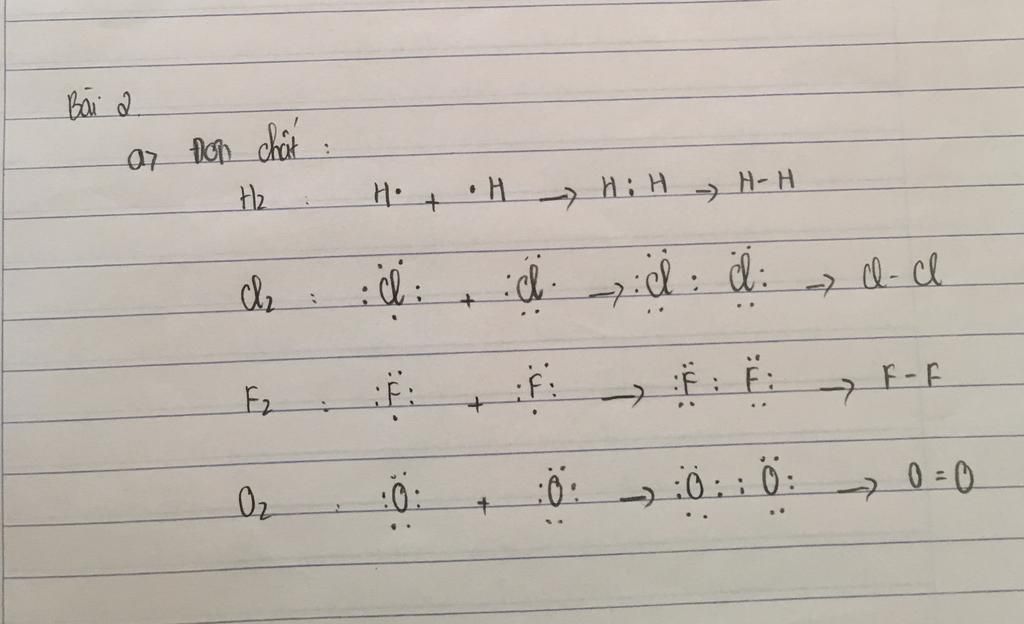 Bài 2
a, Đơn chất :
H₂ : H· + ·H → H : H → H-H
Cl₂ : :C̈l: + :C̈l· → :C̈l : C̈l: → Cl-Cl
F₂ : :F̈: + :F̈: → :F̈ : F̈: → F-F
O₂ : :Ö: + :Ö: → :Ö: :Ö: → O=O